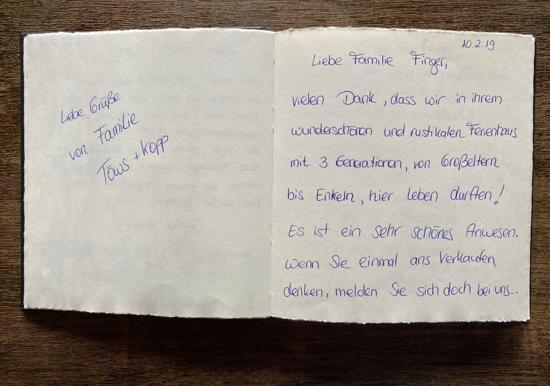 Liebe Grüße
von Familie
Töws + Kopp
10.2.19
Liebe Familie Finger,
vielen Dank, dass wir in ihrem
wunderschönen und rustikalen Ferienhaus
mit 3 Generationen, von Großeltern
bis Enkeln, hier leben durften!
Es ist ein sehr schönes Anwesen.
Wenn Sie einmal ans Verkaufen
denken, melden Sie sich doch bei uns...